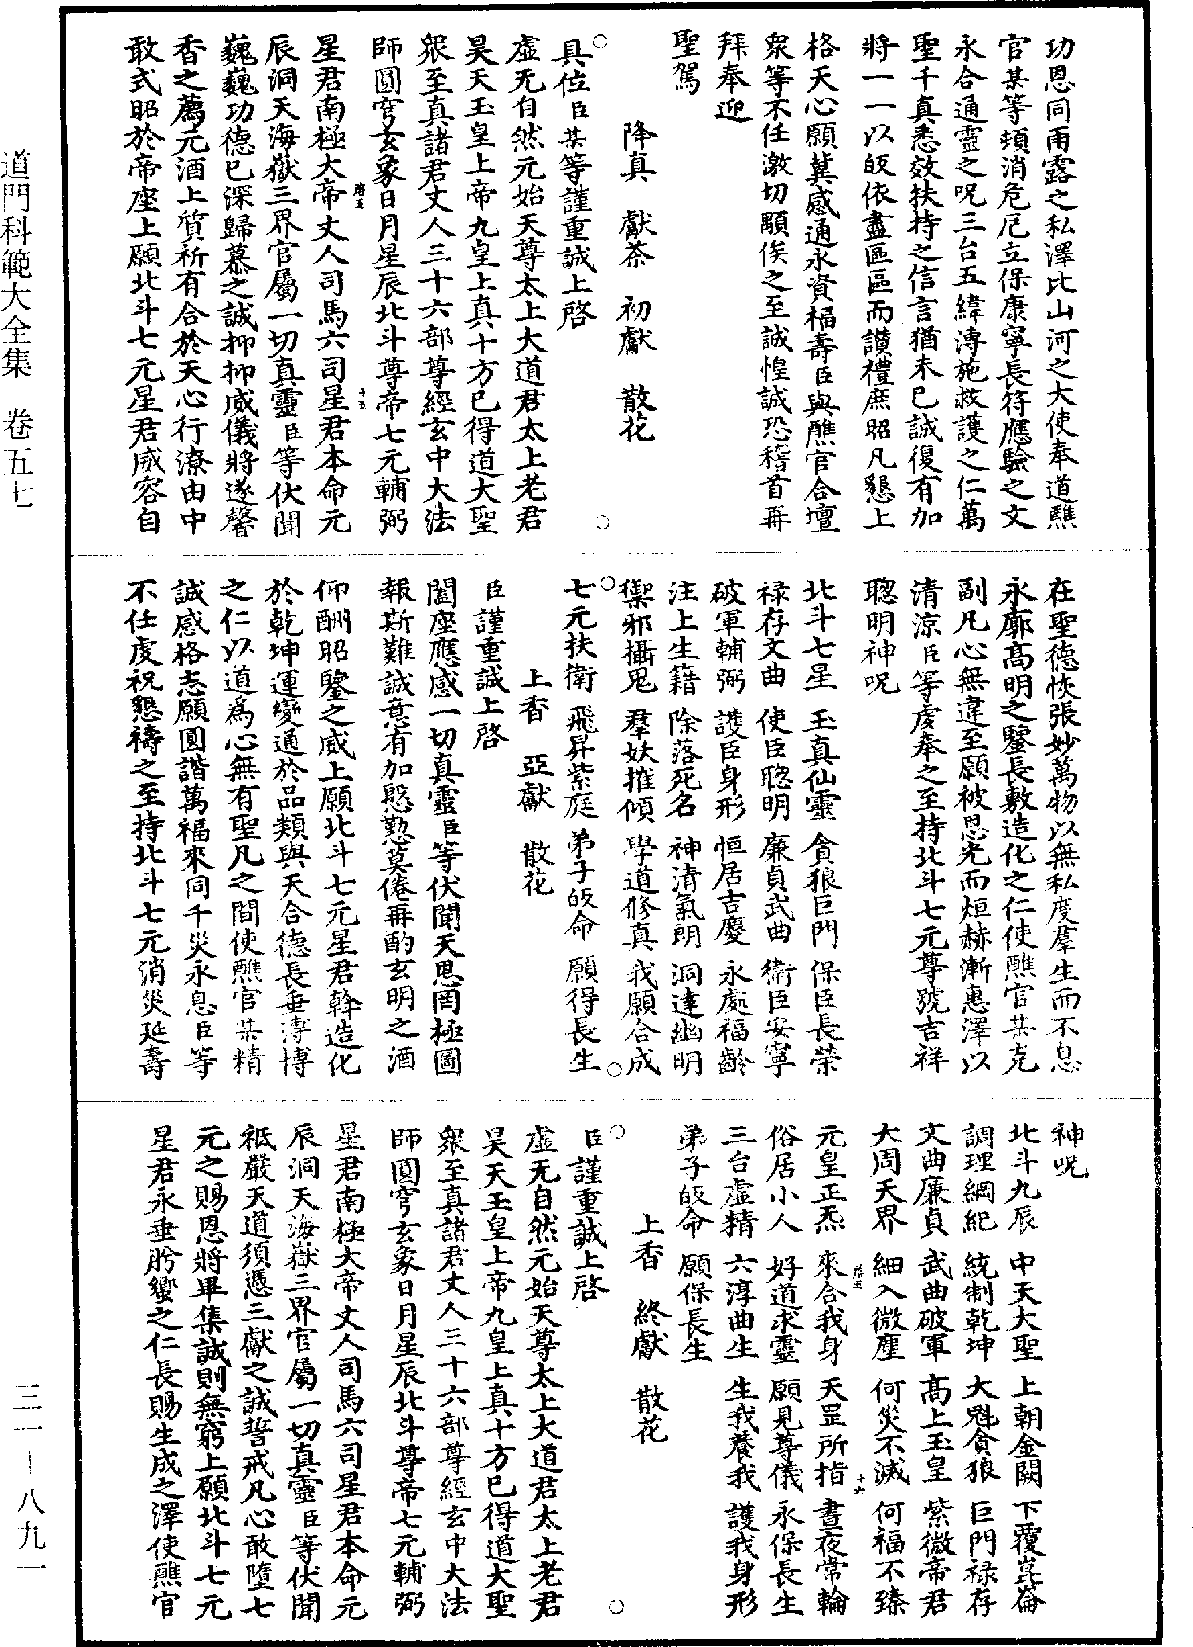 道門科範大全集　卷五七
三一－八九一
功恩同雨露之私澤比山河之大使奉道醮
官某等頓消危厄立保康寧長符應驗之文
永合通靈之呪三台五緯溥施救護之仁萬
聖千真悉效扶持之信言猶未已誠復有加
將一一以皈依盡區區而讚禮庶昭凡懇上
格天心願冀感通永資福壽臣與醮官合壇
眾等不任激切顒俟之至誠惶誠恐稽首再
拜奉迎
聖駕
降真　獻茶　初獻　散花
具位臣某等謹重誠上啓
虛无自然元始天尊太上大道君太上老君
昊天玉皇上帝九皇上真十方已得道大聖
眾至真諸君丈人三十六部尊經玄中大法
師圓穹玄象日月星辰北斗尊帝七元輔弼
星君南極大帝丈人司馬六司星君本命元
辰洞天海嶽三界官屬一切真靈臣等伏聞
巍巍功德已深歸慕之誠抑抑威儀將遂馨
香之薦元酒上質祈有合於天心行潦由中
敢式昭於帝座上願北斗七元星君威容自
在聖德恢張妙萬物以無私度羣生而不息
永廓高明之鑒長敷造化之仁使醮官某克
副凡心無違至願被恩光而烜赫漸惠澤以
清涼臣等虔奉之至持北斗七元尊號吉祥
聰明神呪
北斗七星　玉真仙靈　貪狼巨門　保臣長榮
祿存文曲　使臣聰明　廉貞武曲　衛臣安寧
破軍輔弼　護臣身形　恒居吉慶　永處福齡
注上生籍　除落死名　神清氣朗　洞達幽明
禦邪攝鬼　羣妖摧傾　學道修真　我願合成
七元扶衛　飛昇紫庭　弟子皈命　願得長生
上香　亞獻　散花
臣謹重誠上啓
闔座應感一切真靈臣等伏聞天恩罔極圖
報斯難誠意有加慇懃莫倦再酌玄明之酒
仰酬昭鑒之威上願北斗七元星君斡造化
於乾坤運變通於品類與天合德長垂溥博
之仁以道為心無有聖凡之間使醮官某精
誠感格志願圓諧萬福來同千災永息臣等
不任虔祝懇禱之至持北斗七元消災延壽
神呪
北斗九辰　中天大聖　上朝金闕　下覆崑崙
調理綱紀　統制乾坤　大魁貪狼　巨門祿存
文曲廉貞　武曲破軍　高上玉皇　紫微帝君
大周天界　細入微塵　何災不滅　何福不臻
元皇正炁　來合我身　天罡所指　晝夜常輪
俗居小人　好道求靈　願見尊儀　永保長生
三台虛精　六淳曲生　生我養我　護我身形
弟子皈命　願保長生
上香　終獻　散花
臣謹重誠上啓
虛无自然元始天尊太上大道君太上老君
昊天玉皇上帝九皇上真十方已得道大聖
眾至真諸君丈人三十六部尊經玄中大法
師圓穹玄象日月星辰北斗尊帝七元輔弼
星君南極大帝丈人司馬六司星君本命元
辰洞天海嶽三界官屬一切真靈臣等伏聞
祗嚴天道須憑三獻之誠誓戒凡心敢墮七
元之賜恩將畢集誠則無窮上願北斗七元
星君永垂肹蠁之仁長賜生成之澤使醮官